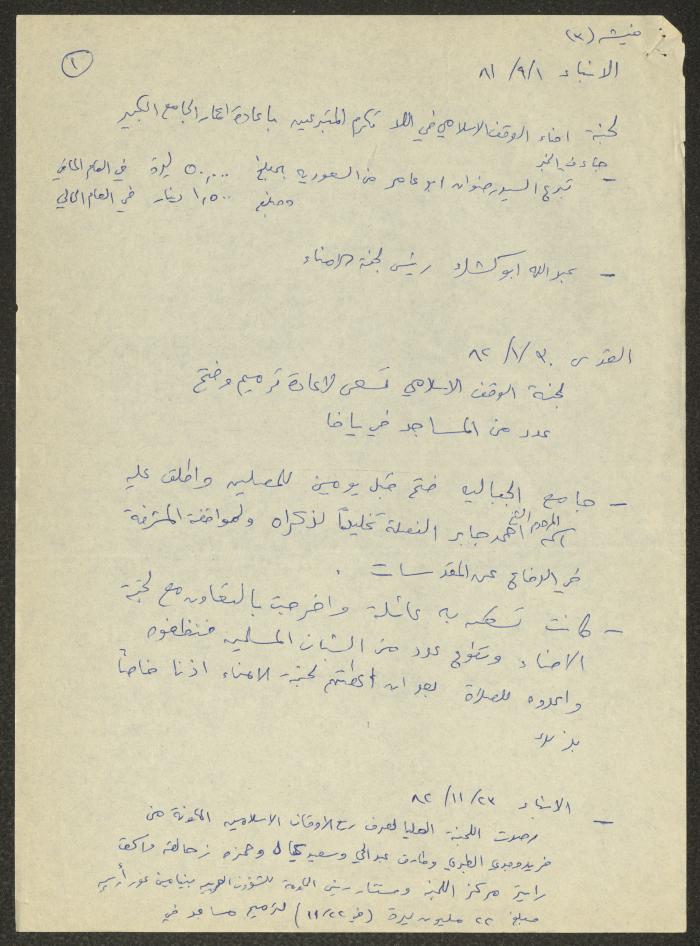 فيشة (٣)
١
الانباء ٨١/٩/١
لجنة امناء الوقف الاسلامي في اللد تكرم المتبرعين باعادة اعمار الجامع الكبير
- جاء في الخبر
تبرع السيد رضوان ابو عامر من السعودية بمبلغ ٥٠,٠٠٠ ليرة في العام الماضي
ومبلغ ١,٥٠٠ دينار في العام الحالي
- عبدالله ابو كشك رئيس لجنة الامناء
القدس ٨٢/١/٣٠
لجنة الوقف الاسلامي تسعى لاعادة ترميم وفتح
عدد من المساجد في يافا
- جامع الجبالية فتح قبل يومين للمصلين واطلق عليه
اسم المرحوم الشيخ احمد جابر النعلة تخليداً لذكراه ولمواقفه المشرفة
في الدفاع عن المقدسات .
- كانت تسكنه به عائلة واخرجت بالتعاون مع لجنة
الامناء وتطوع عدد من الشبان المسلمين فنظفوه
واعدوه للصلاة بعد ان اعطتهم لجنة الامناء اذنا خاصاً
بذلك
- الانباء ٨٢/١١/٢٣
رصدت اللجنة العليا لصرف ريع الاوقاف الاسلامية المكونة من
فريد وجدي الطبري وطارق عبدالحي وسعيد وحمزة زحالقة
مركز اللجنة ومستشار رئيس للشؤون العربية بنيامين غور أرييه
مبلغ ٢٢ مليون ليرة (في ١١/٢٢) لترميم مساجد في